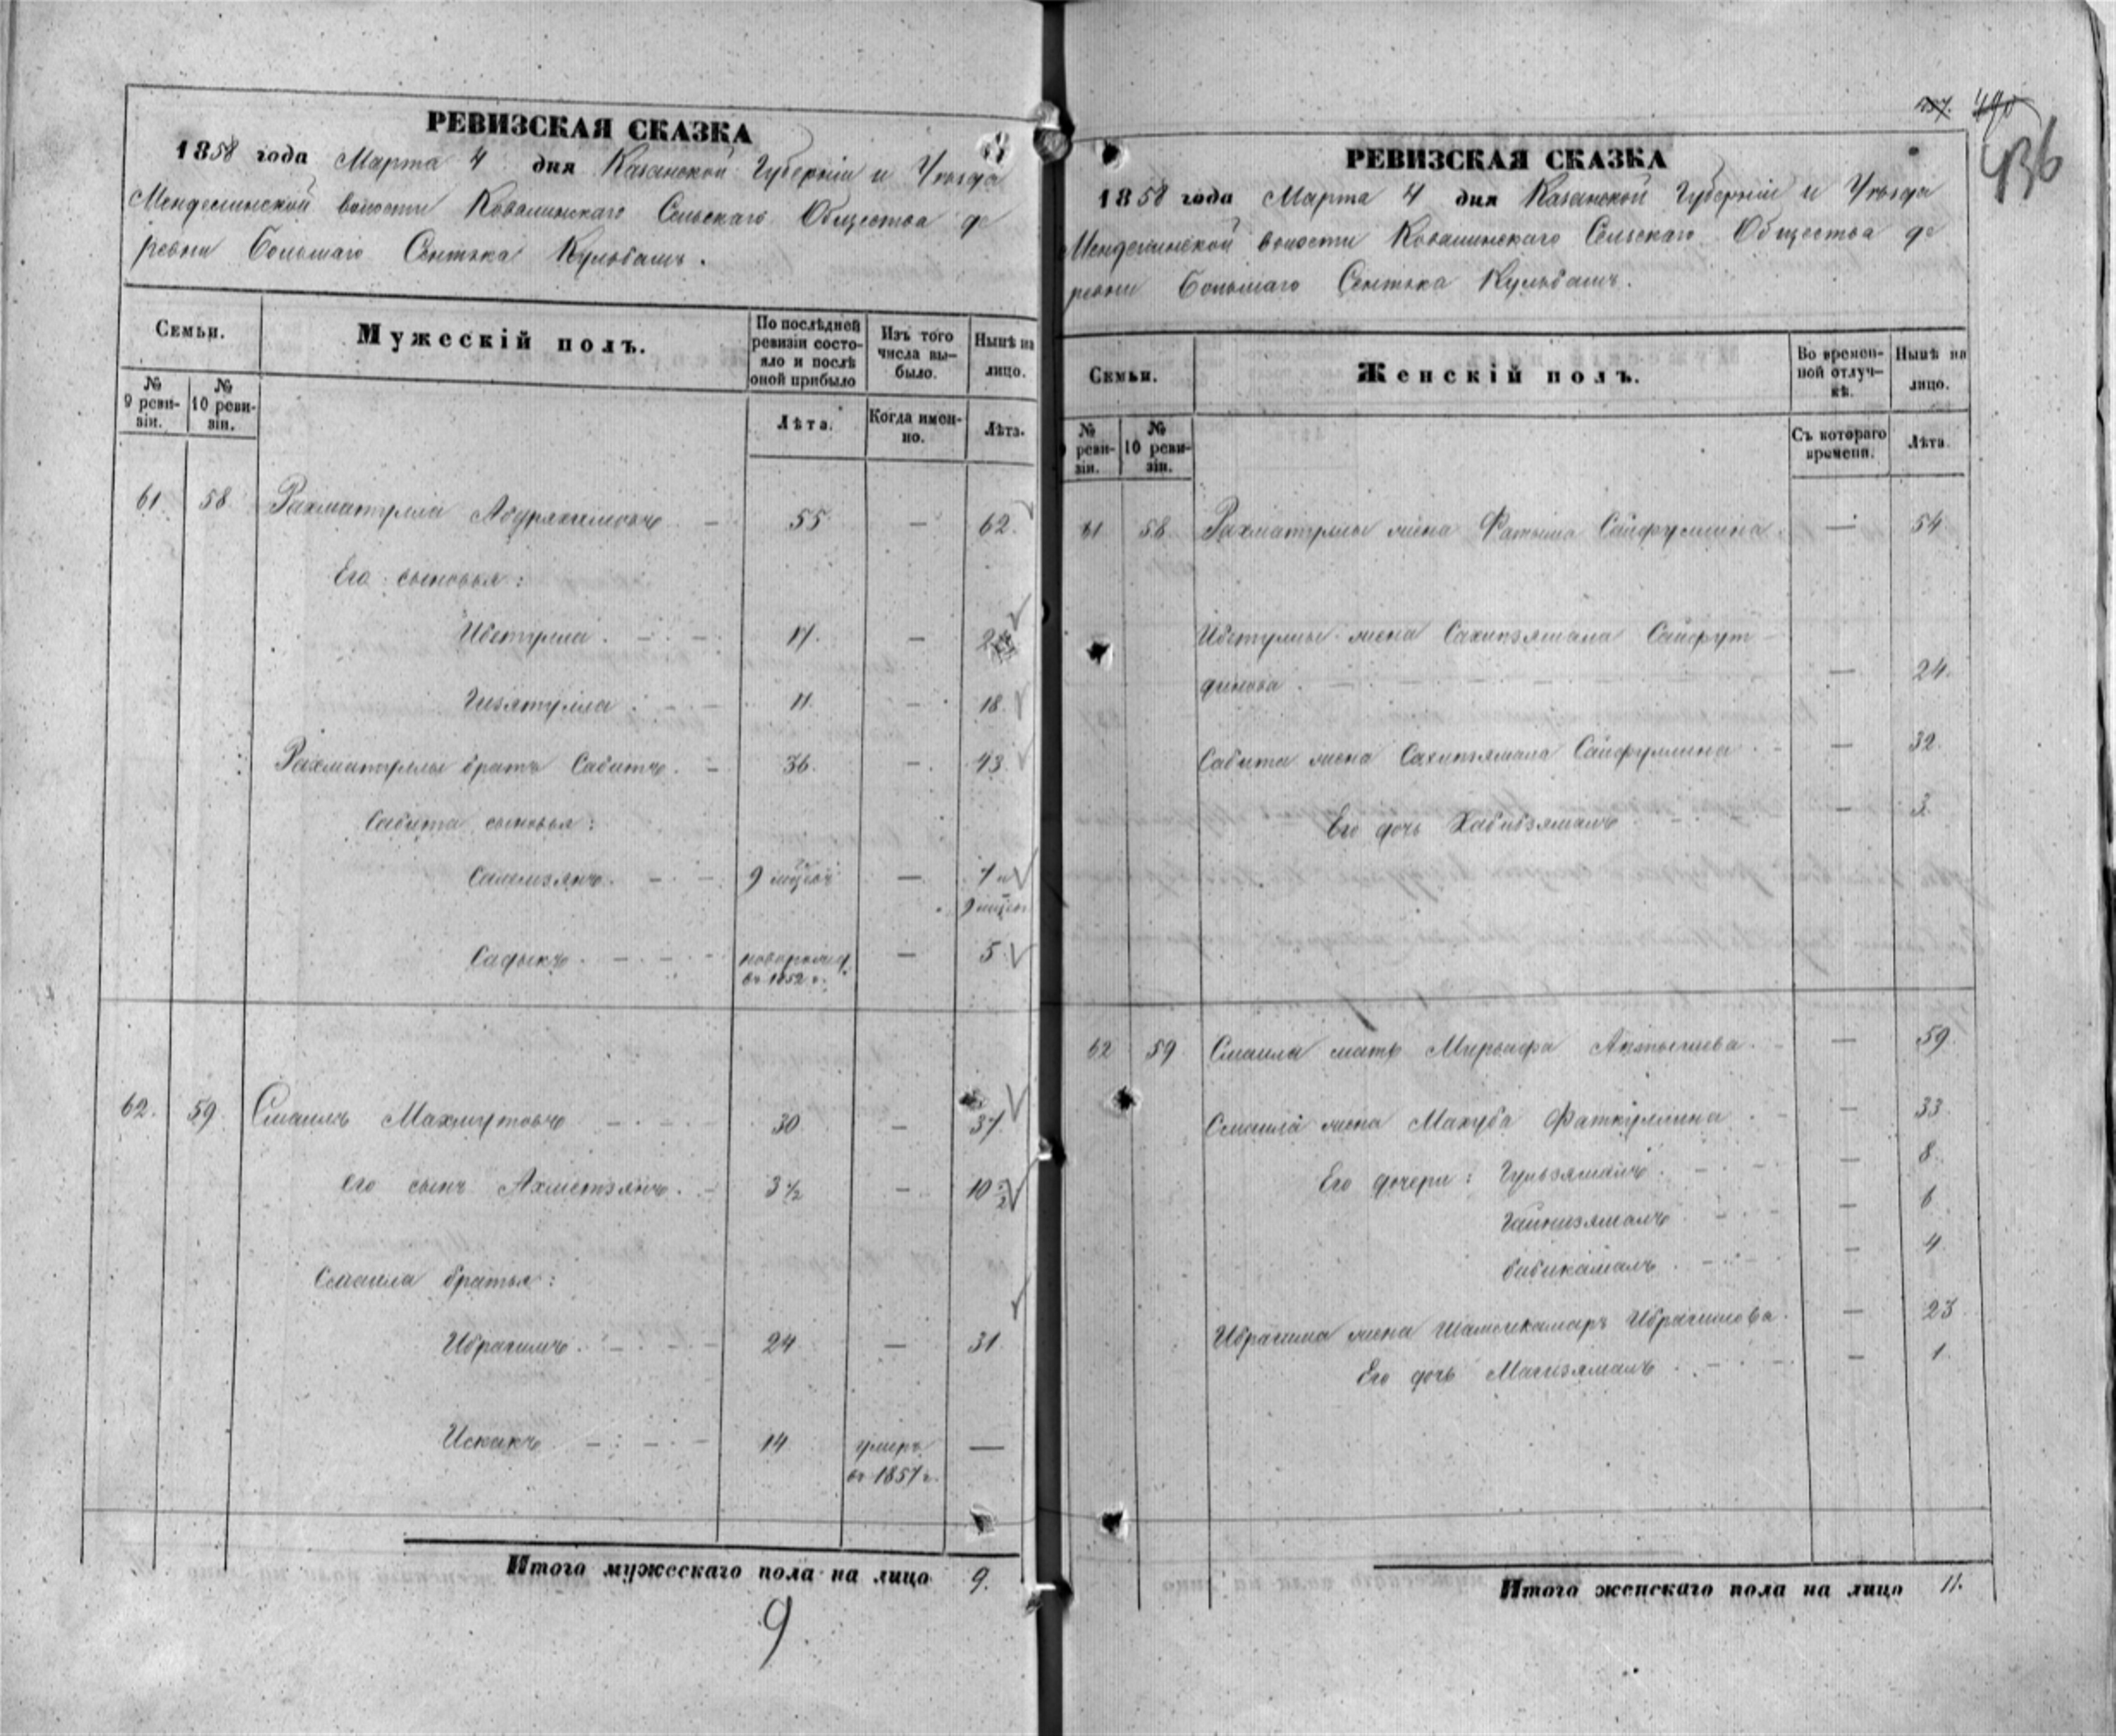 РЕВИЗСКАЯ СКАЗКА
1858 года Марта 4 дня Казанской Губерніи и Уѣзда
Менделинской волости Ковалинскаго Сельскаго Общества де
ревни Большаго Сентяка Кульбашъ.
Семьи.
Мужескій полъ.
По послѣдней ревизіи состояло и послѣ оной прибыло
Изъ того числа выбыло.
Нынѣ на лицо.
№ 9 ревизіи.
№ 10 ревизіи.
Лѣта.
Когда именно.
Лѣта.
61. 58 Рахматулла — 55 — 62.
Его сыновья:
Ибетулла. — 17. —
Гизятулла — 11. — 18.
Рахматуллы братъ Сабитъ. — 36. — 43
Сабита сыновья:
Салемзянъ. — 9 — 7 и
9
Садыкъ. — новорожд. — 5
въ 1852 г.
62. 59 Смаилъ Махмутовъ — 30 — 37.
его сынъ Ахметзянъ. — 3 1/2 — 10 1/2
Смаила братья:
Ибрагимъ. — 24 — 31.
Искакъ — 14 умеръ —
въ 1857 г.
Итого мужескаго пола на лицо 9.
9.
490
436
РЕВИЗСКАЯ СКАЗКА
1858 года Марта 4 дня Казанской Губерніи и Уѣзда
Менделинской волости Ковалинскаго Сельскаго Общества де
ревни Большаго Сентяка Кульбашъ.
Семьи.
Женскій полъ.
Во временной отлучкѣ.
Нынѣ на лицо.
№ ревизіи.
№ 10 ревизіи.
Съ котораго времени.
Лѣта.
61 58 Рахматуллы жена Фатыма Сайфуллина. — 54
Ибетуллы жена Сахипзямала Сайфут
динова. — 24.
Сабита жена Сахипзямала Сайфуллина — 32.
Его дочь Хабибзямалъ — 3.
62 59 Смаила мать — 59.
Смаила жена Махуба Фаткуллина — 33
Его дочери: Гульзямалъ. — 8.
Гайнизямалъ — 6
Бибикамалъ. — 4
Ибрагима жена Шамсикамаръ Ибрагимова. — 23
Его дочь Магизямалъ. — 1.
Итого женскаго пола на лицо 11.